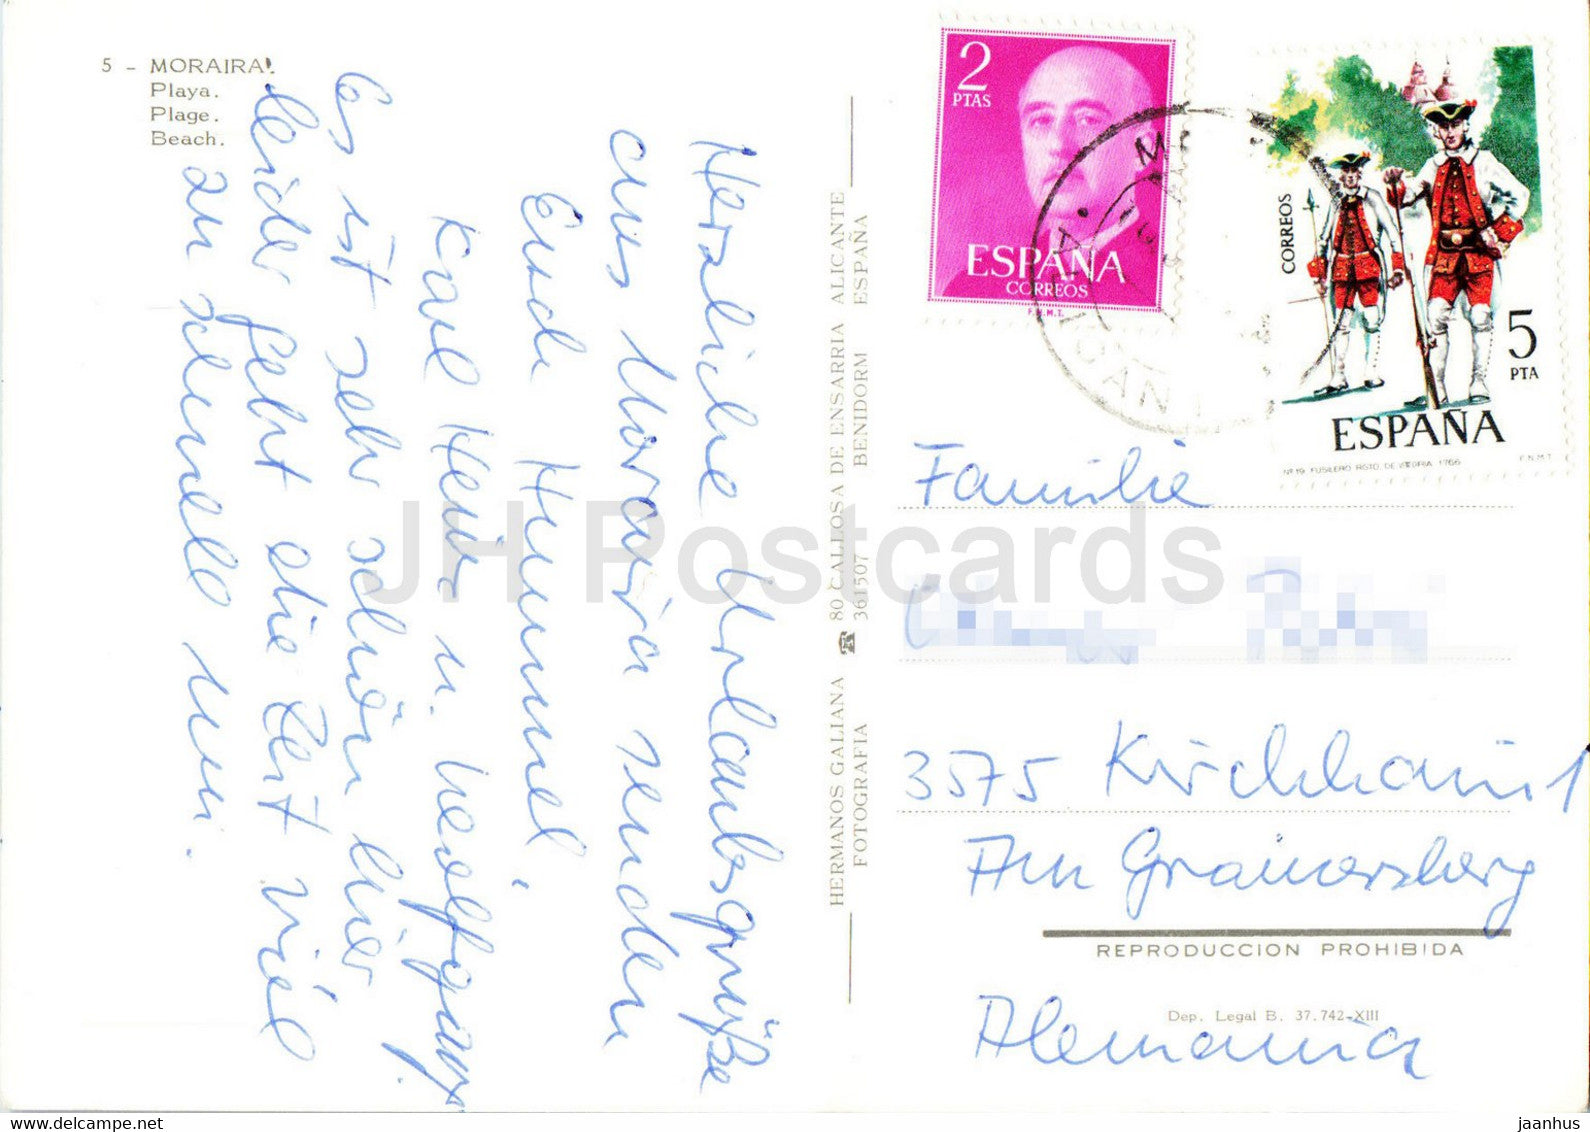 5 - MORAIRA.
Playa.
Plage.
Beach.
Herzliche Urlaubsgrüße
aus Moraira senden
Euch Hummel,
Karl Heinz u. Wolfgang.
Es ist sehr schön hier
leider geht die Zeit viel
zu schnell um.
HERMANOS GALIANA ☎ 80 CALLOSA DE ENSARRIA ALICANTE
FOTOGRAFIA 361507 BENIDORM ESPAÑA
2
PTAS
ESPAÑA
CORREOS
F.N.M.T.
CORREOS
5
PTA
ESPAÑA
Nº 19 FUSILERO RGTO. DE VITORIA 1766 F.N.M.T.
Familie
3575 Kirchhain 1
Am Grainersberg
REPRODUCCION PROHIBIDA
Dep. Legal B. 37.742-XIII
Alemania
JH Postcards
www.delcampe.net
jaanhus